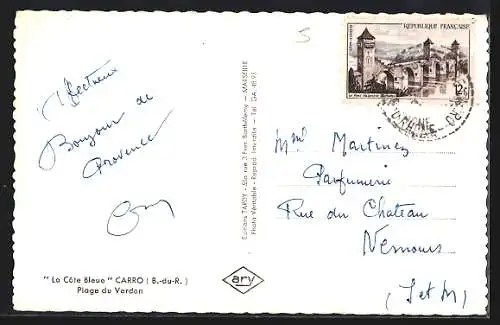 5
Affectueux
Bonjour de
Provence
" La Côte Bleue " CARRO ( B.-du-R. )
Plage du Verdon
Editions TARDY - 5bis rue 3 Fres Barthélémy - MARSEILLE
Photo Véritable - Reprod. Interdite - Tel. GA. 49.91
ary
REPUBLIQUE FRANÇAISE
12F
Mme Martinez
Parfumerie
Rue du Chateau
Nemours
(S et M)